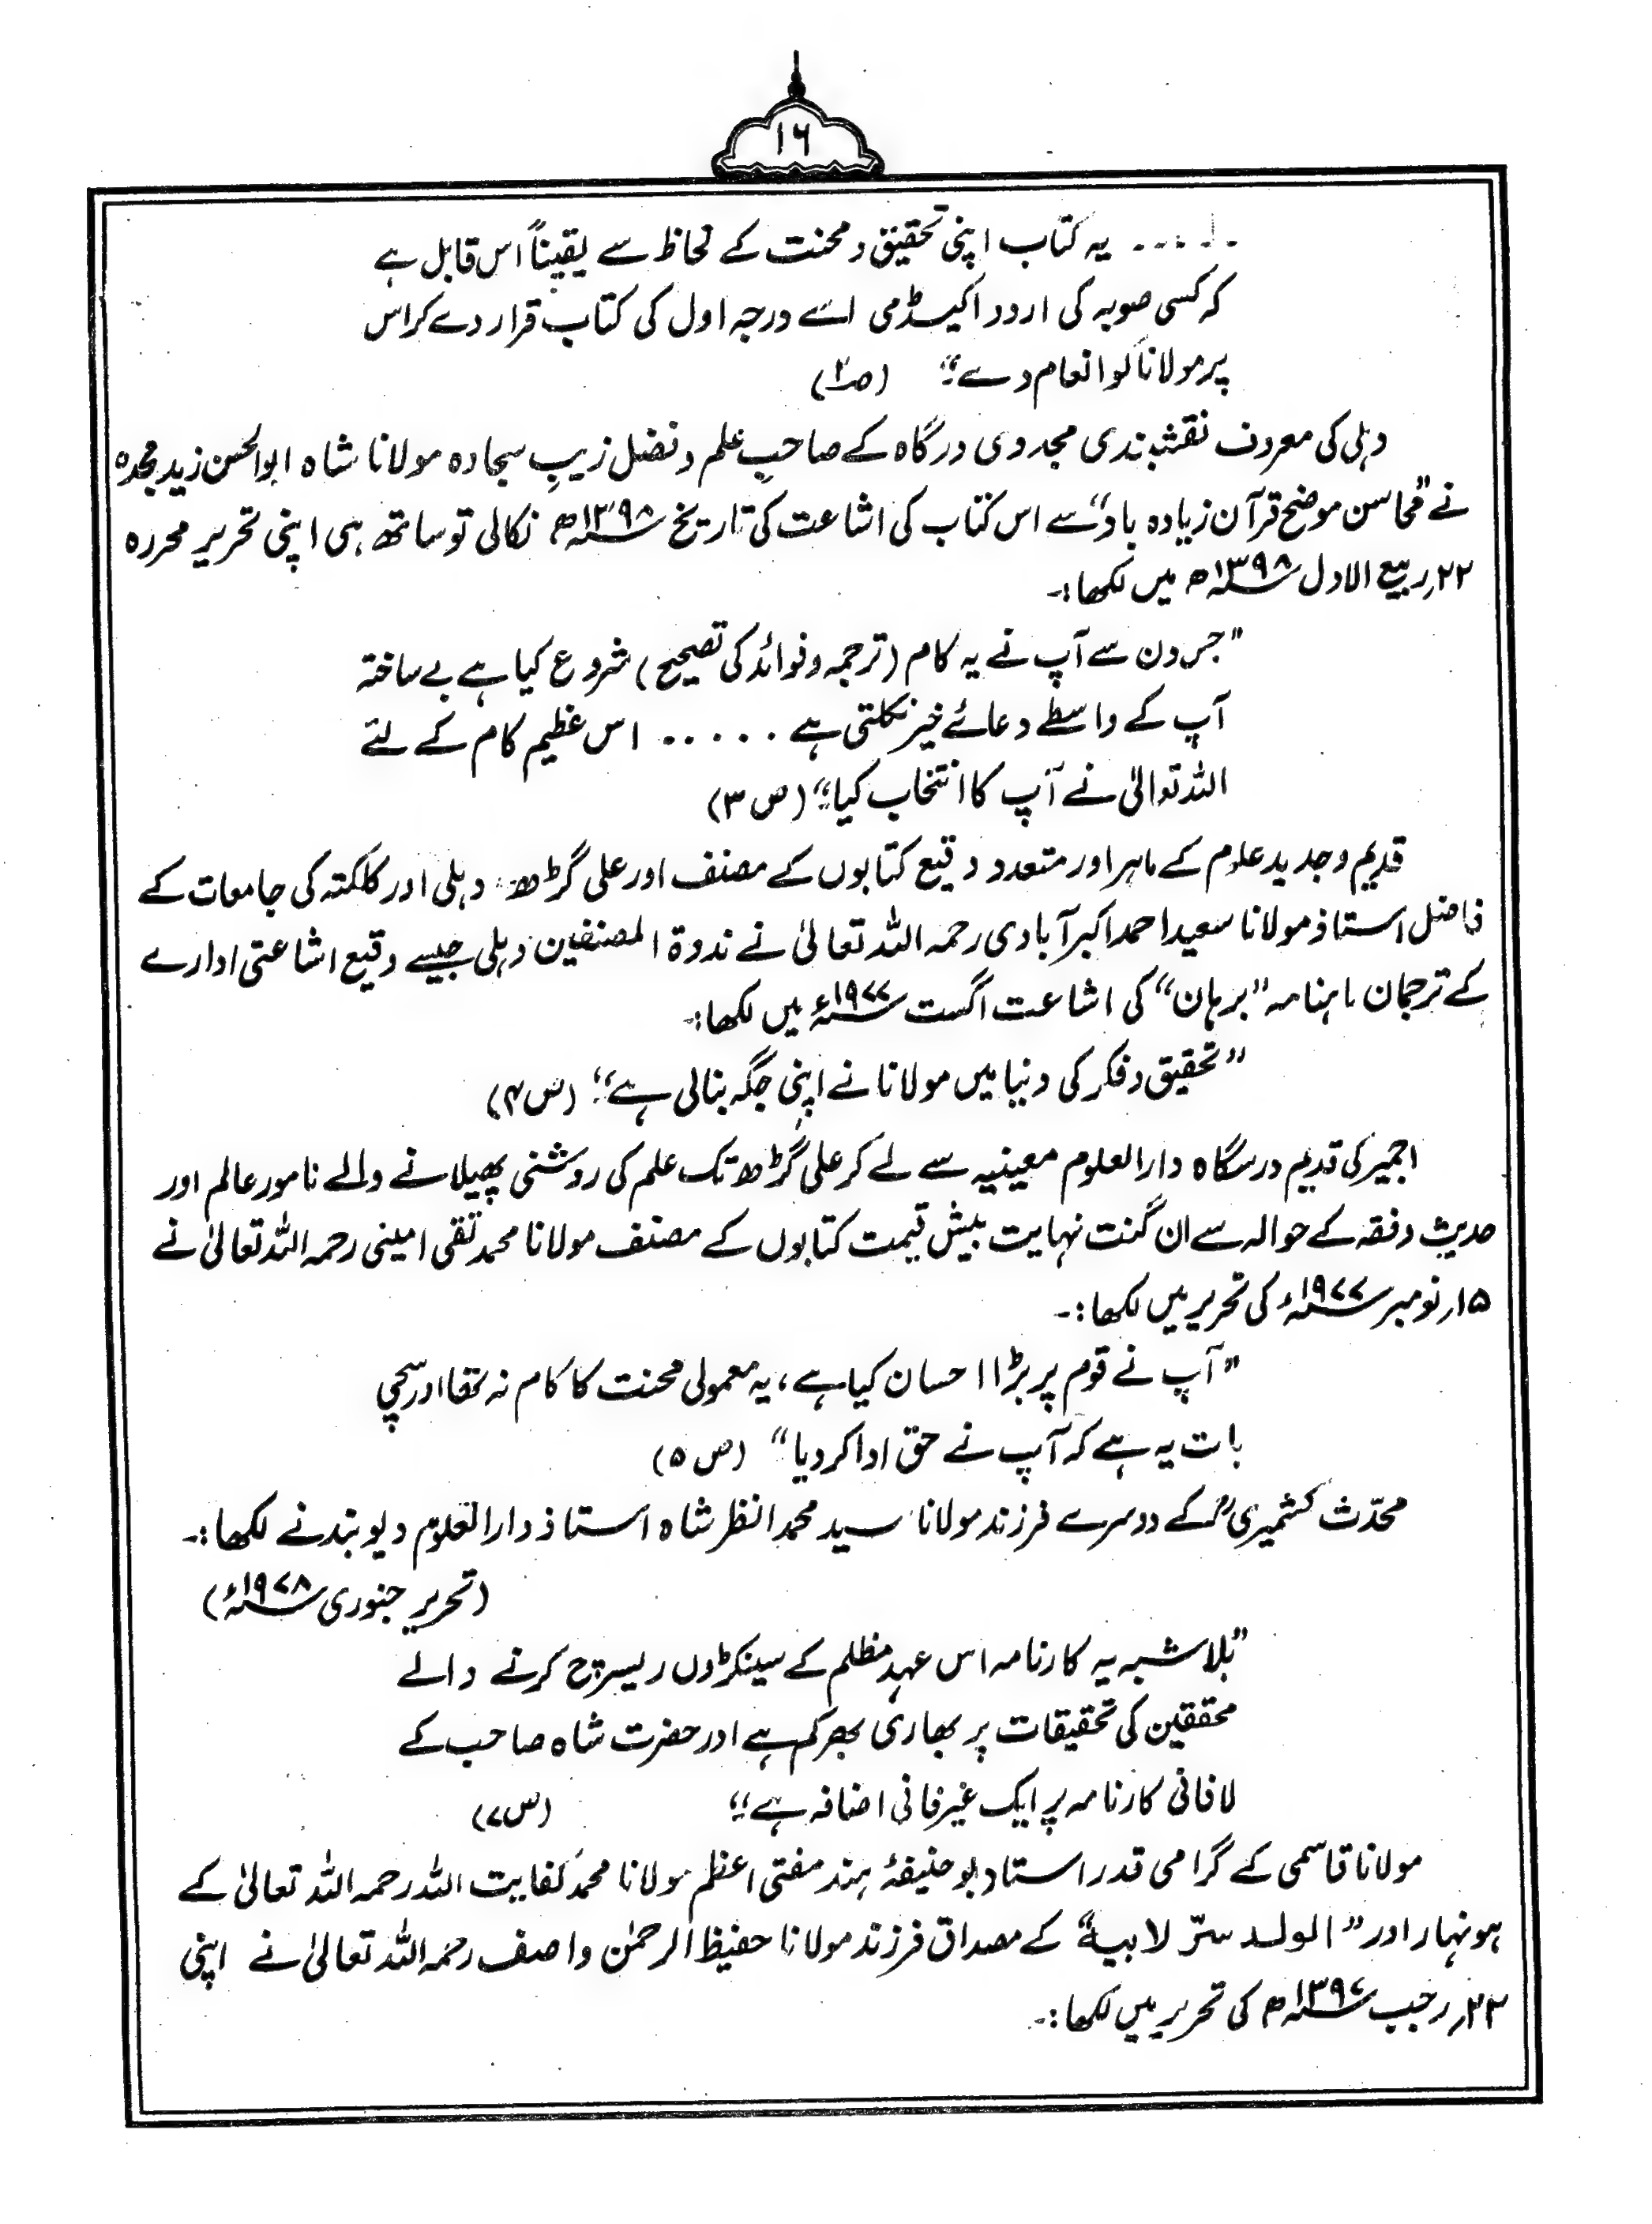 ۱۶
..... یہ کتاب اپنی تحقیق و محنت کے لحاظ سے یقیناً اس قابل ہے
کہ کسی صوبہ کی اردو اکیڈمی اسے درجہ اول کی کتاب قرار دے کر اس
پر مولانا کو انعام دے۔“ (ص۲)
دہلی کی معروف نقشبندی مجددی درگاہ کے صاحبِ علم و فضل زیبِ سجادہ مولانا شاہ ابوالحسن زید مجدہ
نے ”محاسن موضح قرآن زیادہ باد“ سے اس کتاب کی اشاعت کی تاریخ ۱۳۹۸ھ نکالی تو ساتھ ہی اپنی تحریر محررہ
۲۲؍ربیع الاول ۱۳۹۸ھ میں لکھا:۔
”جس دن سے آپ نے یہ کام (ترجمہ و فوائد کی تصحیح) شروع کیا ہے بے ساختہ
آپ کے واسطے دعائے خیر نکلتی ہے ..... اس عظیم کام کے لئے
اللہ تعالیٰ نے آپ کا انتخاب کیا۔“ (ص ۳)
قدیم و جدید علوم کے ماہر اور متعدد وقیع کتابوں کے مصنف اور علی گڑھ، دہلی اور کلکتہ کی جامعات کے
فاضل استاذ مولانا سعید احمد اکبر آبادی رحمہ اللہ تعالیٰ نے ندوۃ المصنفین دہلی جیسے وقیع اشاعتی ادارے
کے ترجمان ماہنامہ ”برہان“ کی اشاعت اگست ۱۹۷۷ء میں لکھا:۔
”تحقیق و فکر کی دنیا میں مولانا نے اپنی جگہ بنالی ہے۔“ (ص ۴)
اجمیر کی قدیم درسگاہ دارالعلوم معینیہ سے لے کر علی گڑھ تک علم کی روشنی پھیلانے والے نامور عالم اور
حدیث و فقہ کے حوالہ سے ان گنت نہایت بیش قیمت کتابوں کے مصنف مولانا محمد تقی امینی رحمہ اللہ تعالیٰ نے
۱۵؍نومبر ۱۹۷۷ء کی تحریر میں لکھا:۔
”آپ نے قوم پر بڑا احسان کیا ہے، یہ معمولی محنت کا کام نہ تھا اور سچی
بات یہ ہے کہ آپ نے حق ادا کر دیا“ (ص ۵)
محدّث کشمیریؒ کے دوسرے فرزند مولانا سید محمد انظر شاہ استاذ دارالعلوم دیوبند نے لکھا:۔
(تحریر جنوری ۱۹۷۸ء)
”بلاشبہ یہ کارنامہ اس عہدِ مظلم کے سینکڑوں ریسرچ کرنے والے
محققین کی تحقیقات پر بھاری بھرکم ہے اور حضرت شاہ صاحب کے
لافانی کارنامہ پر ایک غیر فانی اضافہ ہے۔“ (ص۷)
مولانا قاسمی کے گرامی قدر استاد ابو حنیفۂ ہند مفتی اعظم مولانا محمد کفایت اللہ رحمہ اللہ تعالیٰ کے
ہونہار اور ”الولد سرّ لابیہ“ کے مصداق فرزند مولانا حفیظ الرحمٰن واصف رحمہ اللہ تعالیٰ نے اپنی
۲۳؍رجب ۱۳۹۷ھ کی تحریر میں لکھا:۔